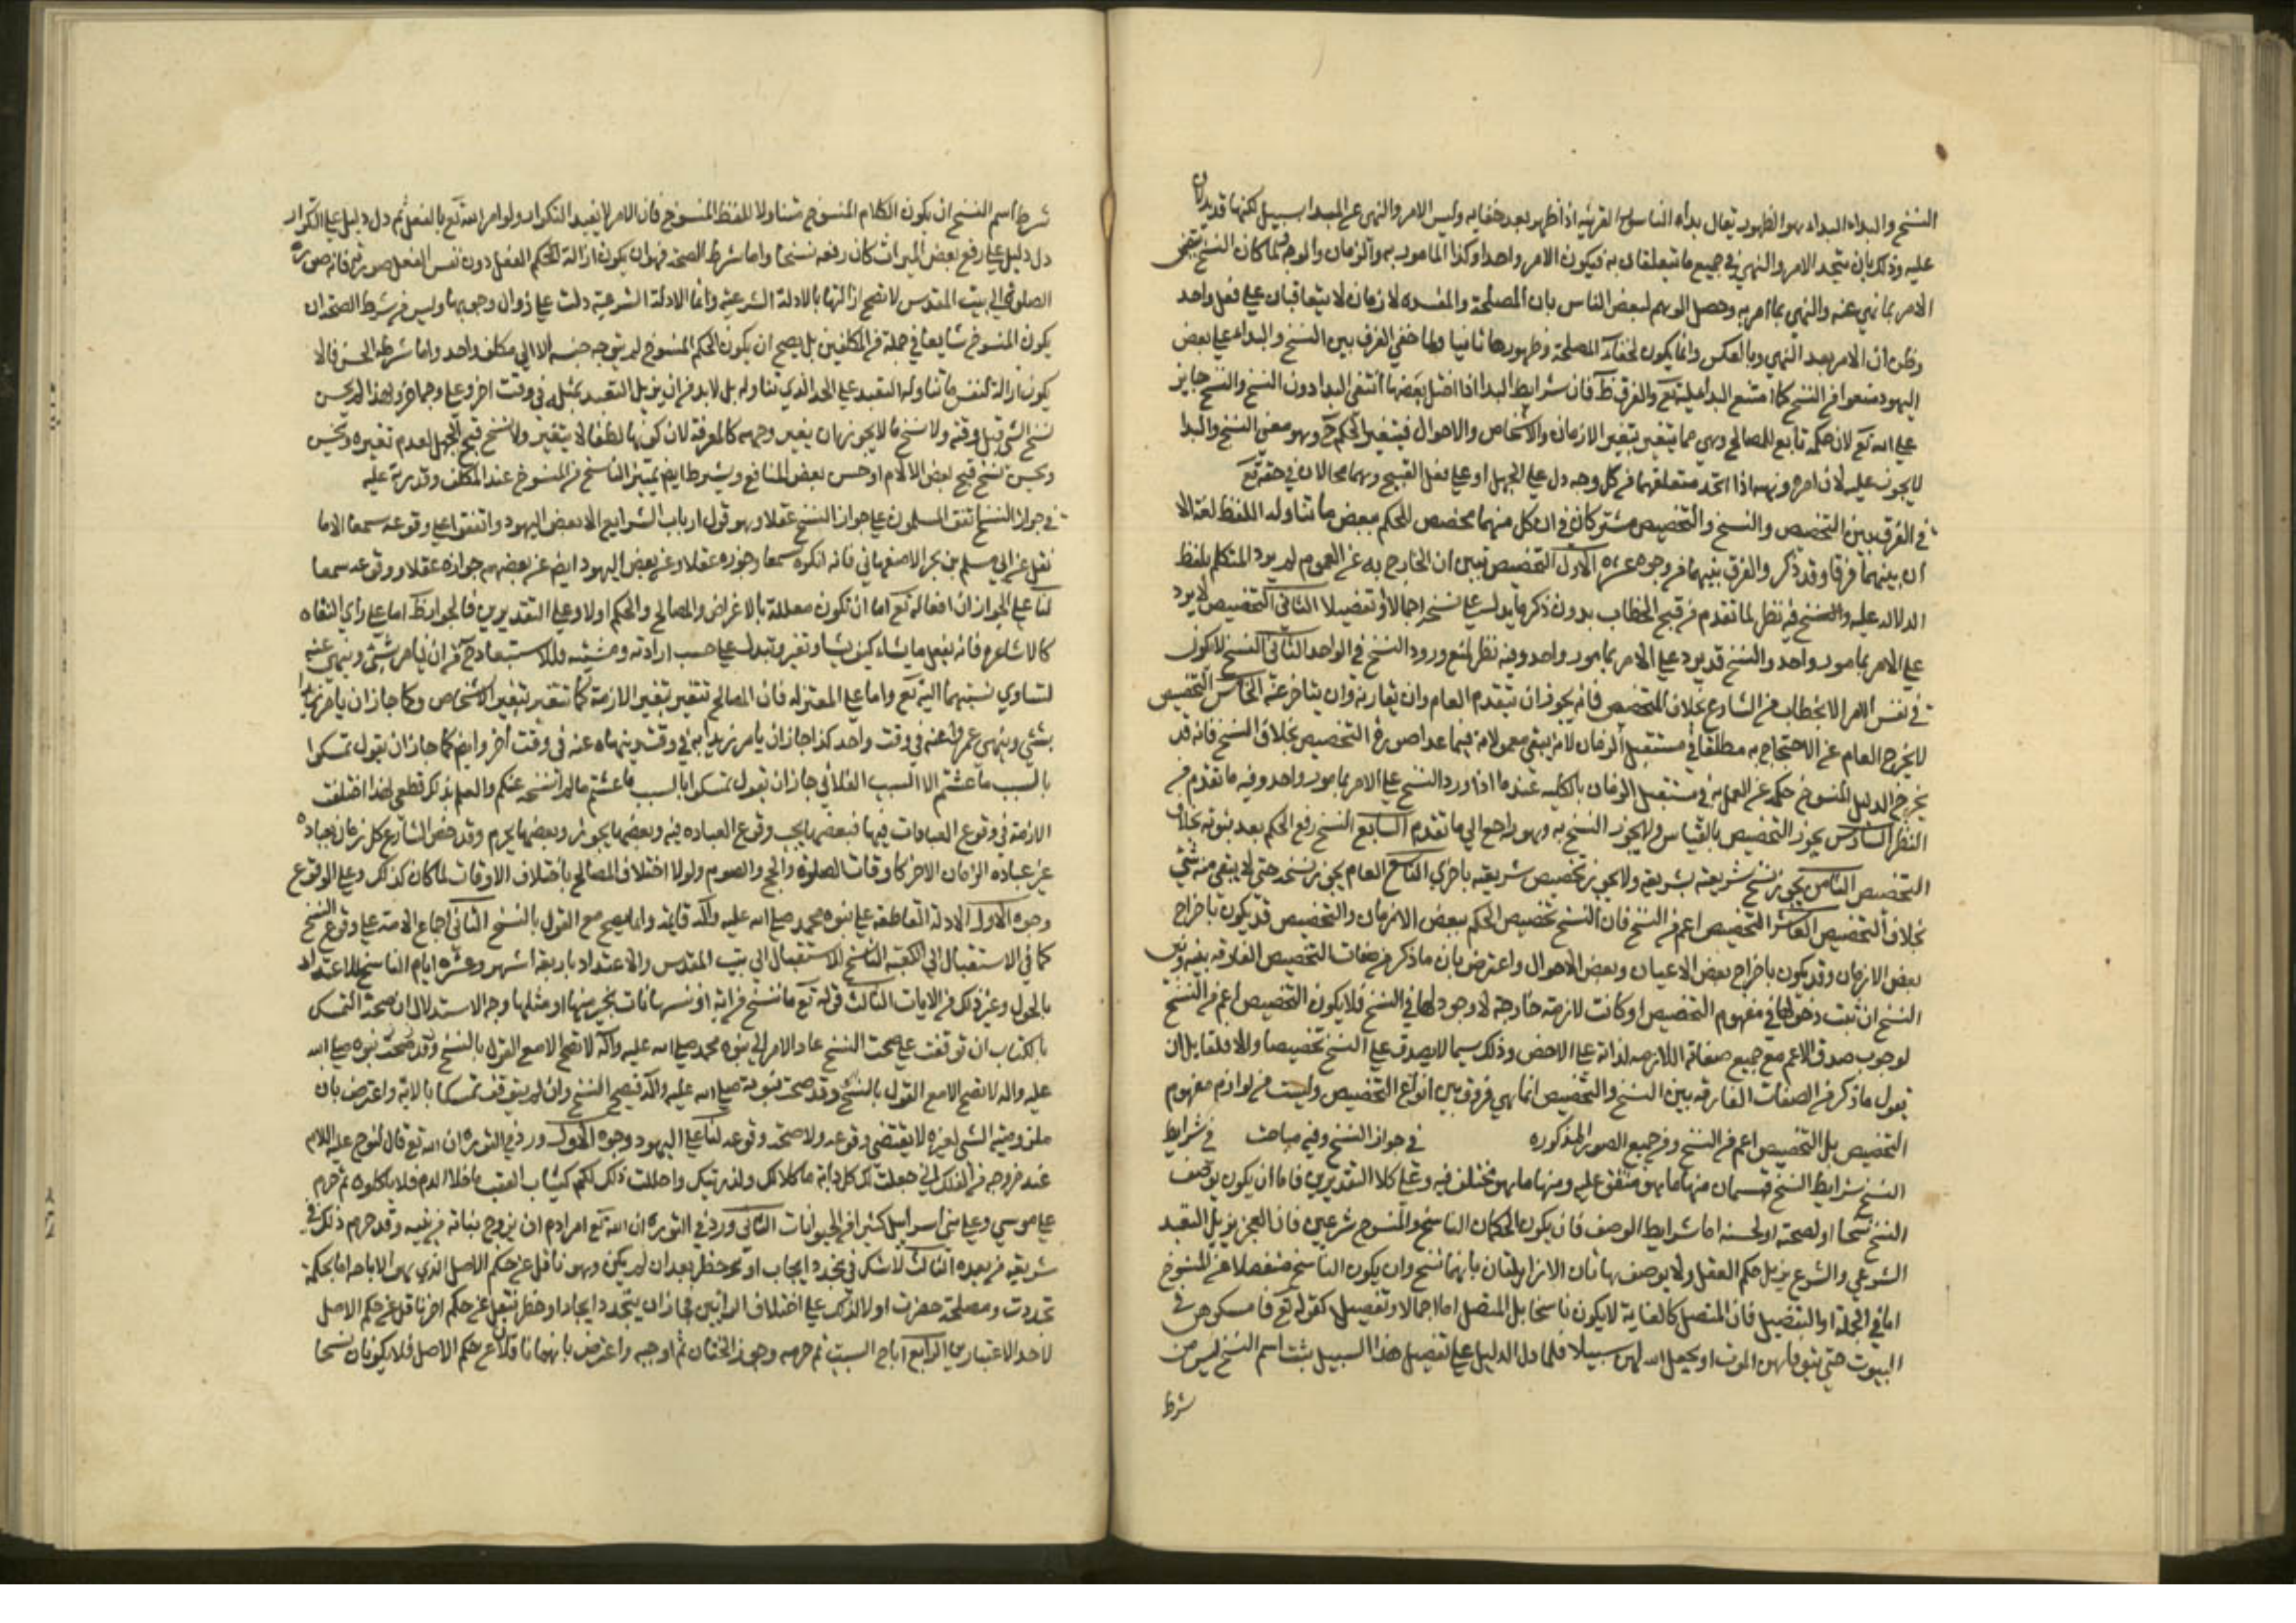 النسخ والبداء البداء هو الظهور يقال بداء لنا سور القرية اذا ظهر بعد خفايه وليس الامر والنهي عن المبدا سبيل لكنهما قد يدلان
عليه وذلك بان يتحد الامر والنهي في جميع ما يتعلقان به فيكون الامر واحدا وكذا المامور به والزمان والوجه لما كان النسخ يقتضي
الامر بما نهي عنه والنهي بما امر به وحصل الوهم لبعض الناس بان المصلحة والمفسده لازمان لا يتعاقبان علي فعل واحد
وظن ان الامر بعد النهي وبالعكس وانما يكون لخفاء المصلحة وظهورها ثانيا ولما خفي الفرق بين النسخ والبداء علي بعض
اليهود منعوا من النسخ كما امتنع البدا عليه تع والفرق ظ فان شرايط البدا اذا اختل بعضها انتفي البدا دون النسخ والنسخ جايز
علي الله تع لان حكمه تابع للمصالح وهي مما يتغير بتغير الازمان والاشخاص والاحوال فيتغير الحكم ح وهو معني النسخ والبدا
لا يجوز عليه لان امره ونهيه اذا اتحد متعلقهما من كل وجه دل علي الجهل او علي فعل القبيح وهما محالان في حقه تع
في الفرق بين التخصيص والنسخ والتخصيص مشتركان في ان كل منهما مخصص للحكم ببعض ما تناوله اللفظ لغة الا
ان بينهما فرقا وقد ذكر والفرق بينهما من وجوه عشره الاول التخصيص يبين ان الخارج به عن العموم لم يرد المتكلم بلفظ
الدلاله عليه والنسخ فيه نظر لما تقدم من قبح الخطاب بدون ذكر ما يدل علي نسخه اجمالا او تفصيلا الثاني التخصيص لا يرد
علي الامر بمامور واحد والنسخ قد يرد علي الامر بمامور واحد وفيه نظر لمنع ورود النسخ في الواحد الثالث النسخ لا يكون
في نفس الامر الا بخطاب من الشارع بخلاف المخصص فانه يجوز ان يتقدم العام وان يقارنه وان يتاخر عنه الخامس التخصيص
لا يخرج العام عن الاحتجاج به مطلقا في مستقبل الزمان لانه يبقي معمولا به فيما عدا صورة التخصيص بخلاف النسخ فانه قد
يخرج الدليل المنسوخ حكمه عن العمل به في مستقبل الزمان بالكليه عند ما اذا ورد النسخ علي الامر بمامور واحد وفيه ما تقدم من
النظر السادس يجوز التخصيص بالقياس ولا يجوز النسخ به وهو راجع الي ما تقدم السابع النسخ رفع الحكم بعد ثبوته بخلاف
التخصيص الثامن يجوز نسخ شريعة بشريعه ولا يجوز تخصيص شريعه باخري التاسع العام يجوز نسخه حتي لا يبقي منه شي
بخلاف التخصيص العاشر التخصيص اعم من النسخ فان النسخ تخصيص الحكم ببعض الازمان والتخصيص قد يكون باخراج
بعض الازمان وقد يكون باخراج بعض الاعيان وبعض الاحوال واعترض بان ما ذكر من صفات التخصيص الفارقه بينه وبين
النسخ ان ثبت دخولها في مفهوم التخصيص او كانت لازمة خارجة لا وجود لها في النسخ فلا يكون التخصيص اعم من النسخ
لوجوب صدق الاعم مع جميع صفاته اللازمه لذاته علي الاخص وذلك مما لا يصدق علي النسخ تخصيصا والا فلقايل ان
يقول ما ذكر من الصفات الفارقه بين النسخ والتخصيص انما هي فروق بين انواع التخصيص وليست من لوازم مفهوم
التخصيص بل التخصيص اعم من النسخ ومن جميع الصور المذكوره في جواز النسخ وفيه مباحث في شرايط
النسخ شرايط النسخ قسمان منها ما هو متفق عليه ومنها ما هو مختلف فيه وعلي كلا التقديرين فاما ان يكون يوصف
النسخ نسخا او لصحته او لحسنه اما شرايط الوصف فان يكون الحكمان الناسخ والمنسوخ شرعيين فان العجز يزيل التعبد
الشرعي والشرع يزيل حكم العقل ولا يوصف هاتان الازالتان بانهما نسخ وان يكون الناسخ منفصلا عن المنسوخ
اما في الجملة او التفصيل فان المتصل كالغاية لا يكون ناسخا بل المتصل اما اجمالا وتفصيل كقوله تع فامسكوهن في
البيوت حتي يتوفاهن الموت او يجعل الله لهن سبيلا فلما دل الدليل علي تفصيل هذا السبيل يثبت اسم النسخ ليس من
شرط
شرط اسم النسخ ان يكون الكلام المنسوخ متناولا للفظ المنسوخ فان الامر لا يفيد التكرار ولو امر الله تع بالفعل ثم دل دليل علي التكرار
دل دليل علي رفع بعض المرات كان رفعه نسخا واما شرط الصحة فهو ان يكون ازالة لحكم الفعل دون نفس الفعل صورته فانه صورة
الصلوة الي بيت المقدس لا تصح ازالتها بالادلة الشرعية وانما الادلة الشرعية دلت علي زوال وجوبها وليس من شرط الصحة ان
يكون المنسوخ شايعا في جملة من المكلفين بل يصح ان يكون الحكم المنسوخ لم يتوجه جنسه الا الي مكلف واحد واما شرط الحسن فالا
يكون ازالة لنفس ما تناوله التعبد علي الحد الذي تناوله بل لا بد من ان يزيل التعبد بمثله في وقت اخر وعلي وجه اخر ولهذا لم يحسن
نسخ الشي قبل وقته ولا نسخ ما لا يجوز ان يتغير وجهه كالمعرفة لان كونها لطفا لا يتغير ولا نسخ قبح الجهل لعدم تغيره ويحسن
ويحسن نسخ قبح بعض الالام او حسن بعض المنافع ويشترط ايض تميز الناسخ من المنسوخ عند المكلف وقدرته عليه
في جواز النسخ اتفق المسلمون علي جواز النسخ عقلا وهو قول ارباب الشرايع الا بعض اليهود واتفقوا علي وقوعه سمعا الا ما
نقل عن ابي مسلم بن بحر الاصفهاني فانه انكره سمعا وجوزه عقلا وعن بعض اليهود ايض عن بعضهم جوازه عقلا ووقوعه سمعا
لنا علي الجواز ان افعاله تع اما ان تكون معللة بالاغراض والمصالح والحكم اولا وعلي التقديرين فالجواز ظ اما علي راي النفاه
كالاشاعره فانه يفعل ما يشاء كيف يشا وتغير وتبدل علي حسب ارادته ومشيته فلا استبعاد ح من ان يامر بشي وينهي عنه
لتساوي نسبتهما اليه تع واما علي المعتزله فان المصالح تتغير بتغير الازمنة كما تتغير بتغير الاشخاص وكما جاز ان يامر زيدا
بشي وينهي عمرا عنه في وقت واحد كذا جاز ان يامر زيدا به في وقت وينهاه عنه في وقت اخر وايض كما جاز ان يقول تمسكوا
بالسبت ما عشتم الا السبت الفلاني جاز ان يقول تمسكوا بالسبت ما عشتم ما لم انسخه عنكم والعلم بذلك قطعي لهذا اختلفت
الازمنة في وقوع العبادات فيها فبعضها يجب وقوع العباده فيه وبعضها يجوز وبعضها يحرم وقد خص الشارع كل زمان بعباده
عن عباده الزمان الاخر كاوقات الصلوة والحج والصوم ولولا اختلاف المصالح باختلاف الاوقات لما كان كذلك وعلي الوقوع
وجوه الاول الادلة القاطعه علي نبوه محمد صلي الله عليه وآله قايمة وانما يصح مع القول بالنسخ الثاني اجماع الامة علي وقوع النسخ
كما في الاستقبال الي الكعبة الناسخ للاستقبال الي بيت المقدس والاعتداد باربعة اشهر وعشره ايام الناسخ للاعتداد
بالحول وغير ذلك من الايات الثالث قوله تع ما ننسخ من اية او ننسها نات بخير منها او مثلها وجه الاستدلال ان صحة التمسك
بالكتاب ان توقفت علي صحت النسخ عاد الامر الي نبوه محمد صلي الله عليه وآله لا تصح الا مع القول بالنسخ وقد صحت نبوه صلي الله
عليه واله لا تصح الا مع القول بالنسخ وقد صحت نبوته صلي الله عليه وآله فيصح النسخ وان لم يتوقف تمسكنا بالاية واعترض بان
ملزومية الشي لغيره لا يقتضي وقوعه ولا صحته وقوعه لنا علي اليهود وجوه الاول ورد في التوره ان الله تع قال لنوح عليه اللام
عند خروجه من الفلك اني جعلت لك كل دابة ماكلا لك ولذريتك واحللت ذلك لكم كنبات العشب ما خلا الدم فلا ياكلوه ثم حرم
علي موسي وعلي بني اسرايل كثيرا من الحيوانات الثاني ورد في التوره ان الله تع امر ادم ان يزوج بناته من بنيه وقد حرم ذلك في
شريعة من بعده الثالث لا شك في تجدد ايجاب او حظر بعد ان لم يكن وهو ناقل عن حكم الاصل الذي هو الاباحه اما لحكمة
تجددت ومصلحة حضرت او لا لذلك علي اختلاف الرايين فجاز ان يتجدد ايجاد او حظر ينقل عن حكم اخر ناقل عن حكم الاصل
لاحد الاعتبارين الرابع اباح السبت ثم حرمه وجوز الختان ثم اوجبه واعترض بانهما ناقلان عن حكم الاصل فلا يكونان نسخا